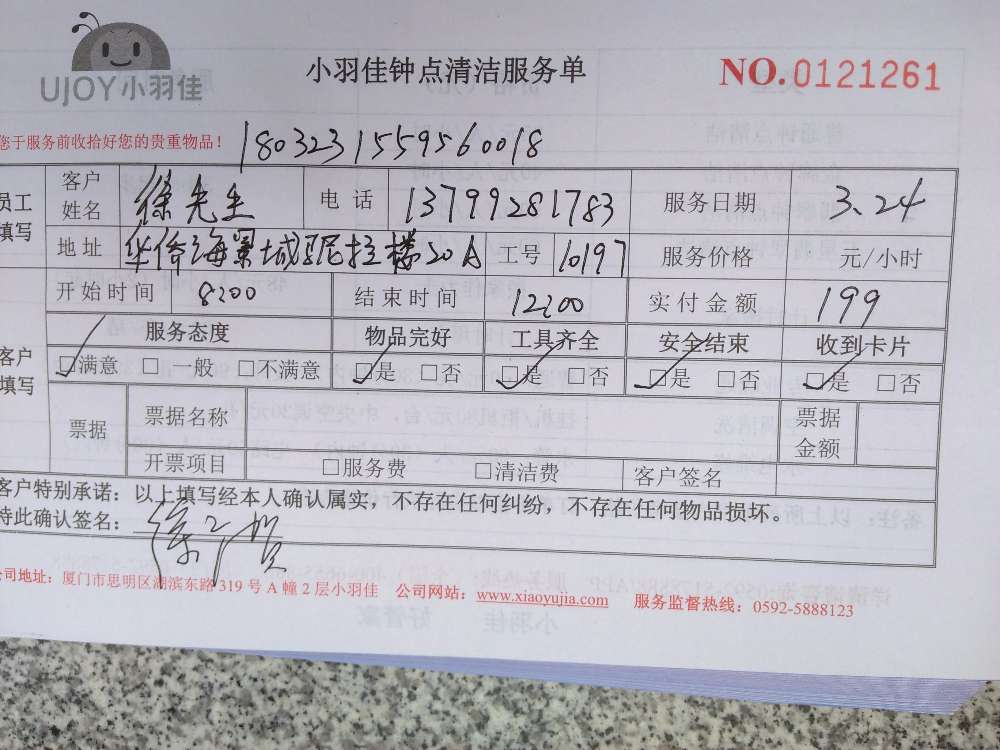 UJOY小羽佳
小羽佳钟点清洁服务单
NO.0121261
您于服务前收拾好您的贵重物品！
1803231559560018
员工填写
客户姓名 徐先生 电 话 13799281783 服务日期 3.24
地址 华侨海景城 尼拉楼20A 工号 10197 服务价格 元/小时
开始时间 8:00 结束时间 12:00 实付金额 199
客户填写
服务态度 物品完好 工具齐全 安全结束 收到卡片
☑满意 □ 一般 □不满意 ☑是 □否 ☑是 □否 ☑是 □否 ☑是 □否
票据 票据名称 票据金额
开票项目 □服务费 □清洁费 客户签名
客户特别承诺：以上填写经本人确认属实，不存在任何纠纷，不存在任何物品损坏。
特此确认签名：
公司地址：厦门市思明区湖滨东路 319 号 A 幢 2 层小羽佳 公司网站：www.xiaoyujia.com 服务监督热线：0592-5888123